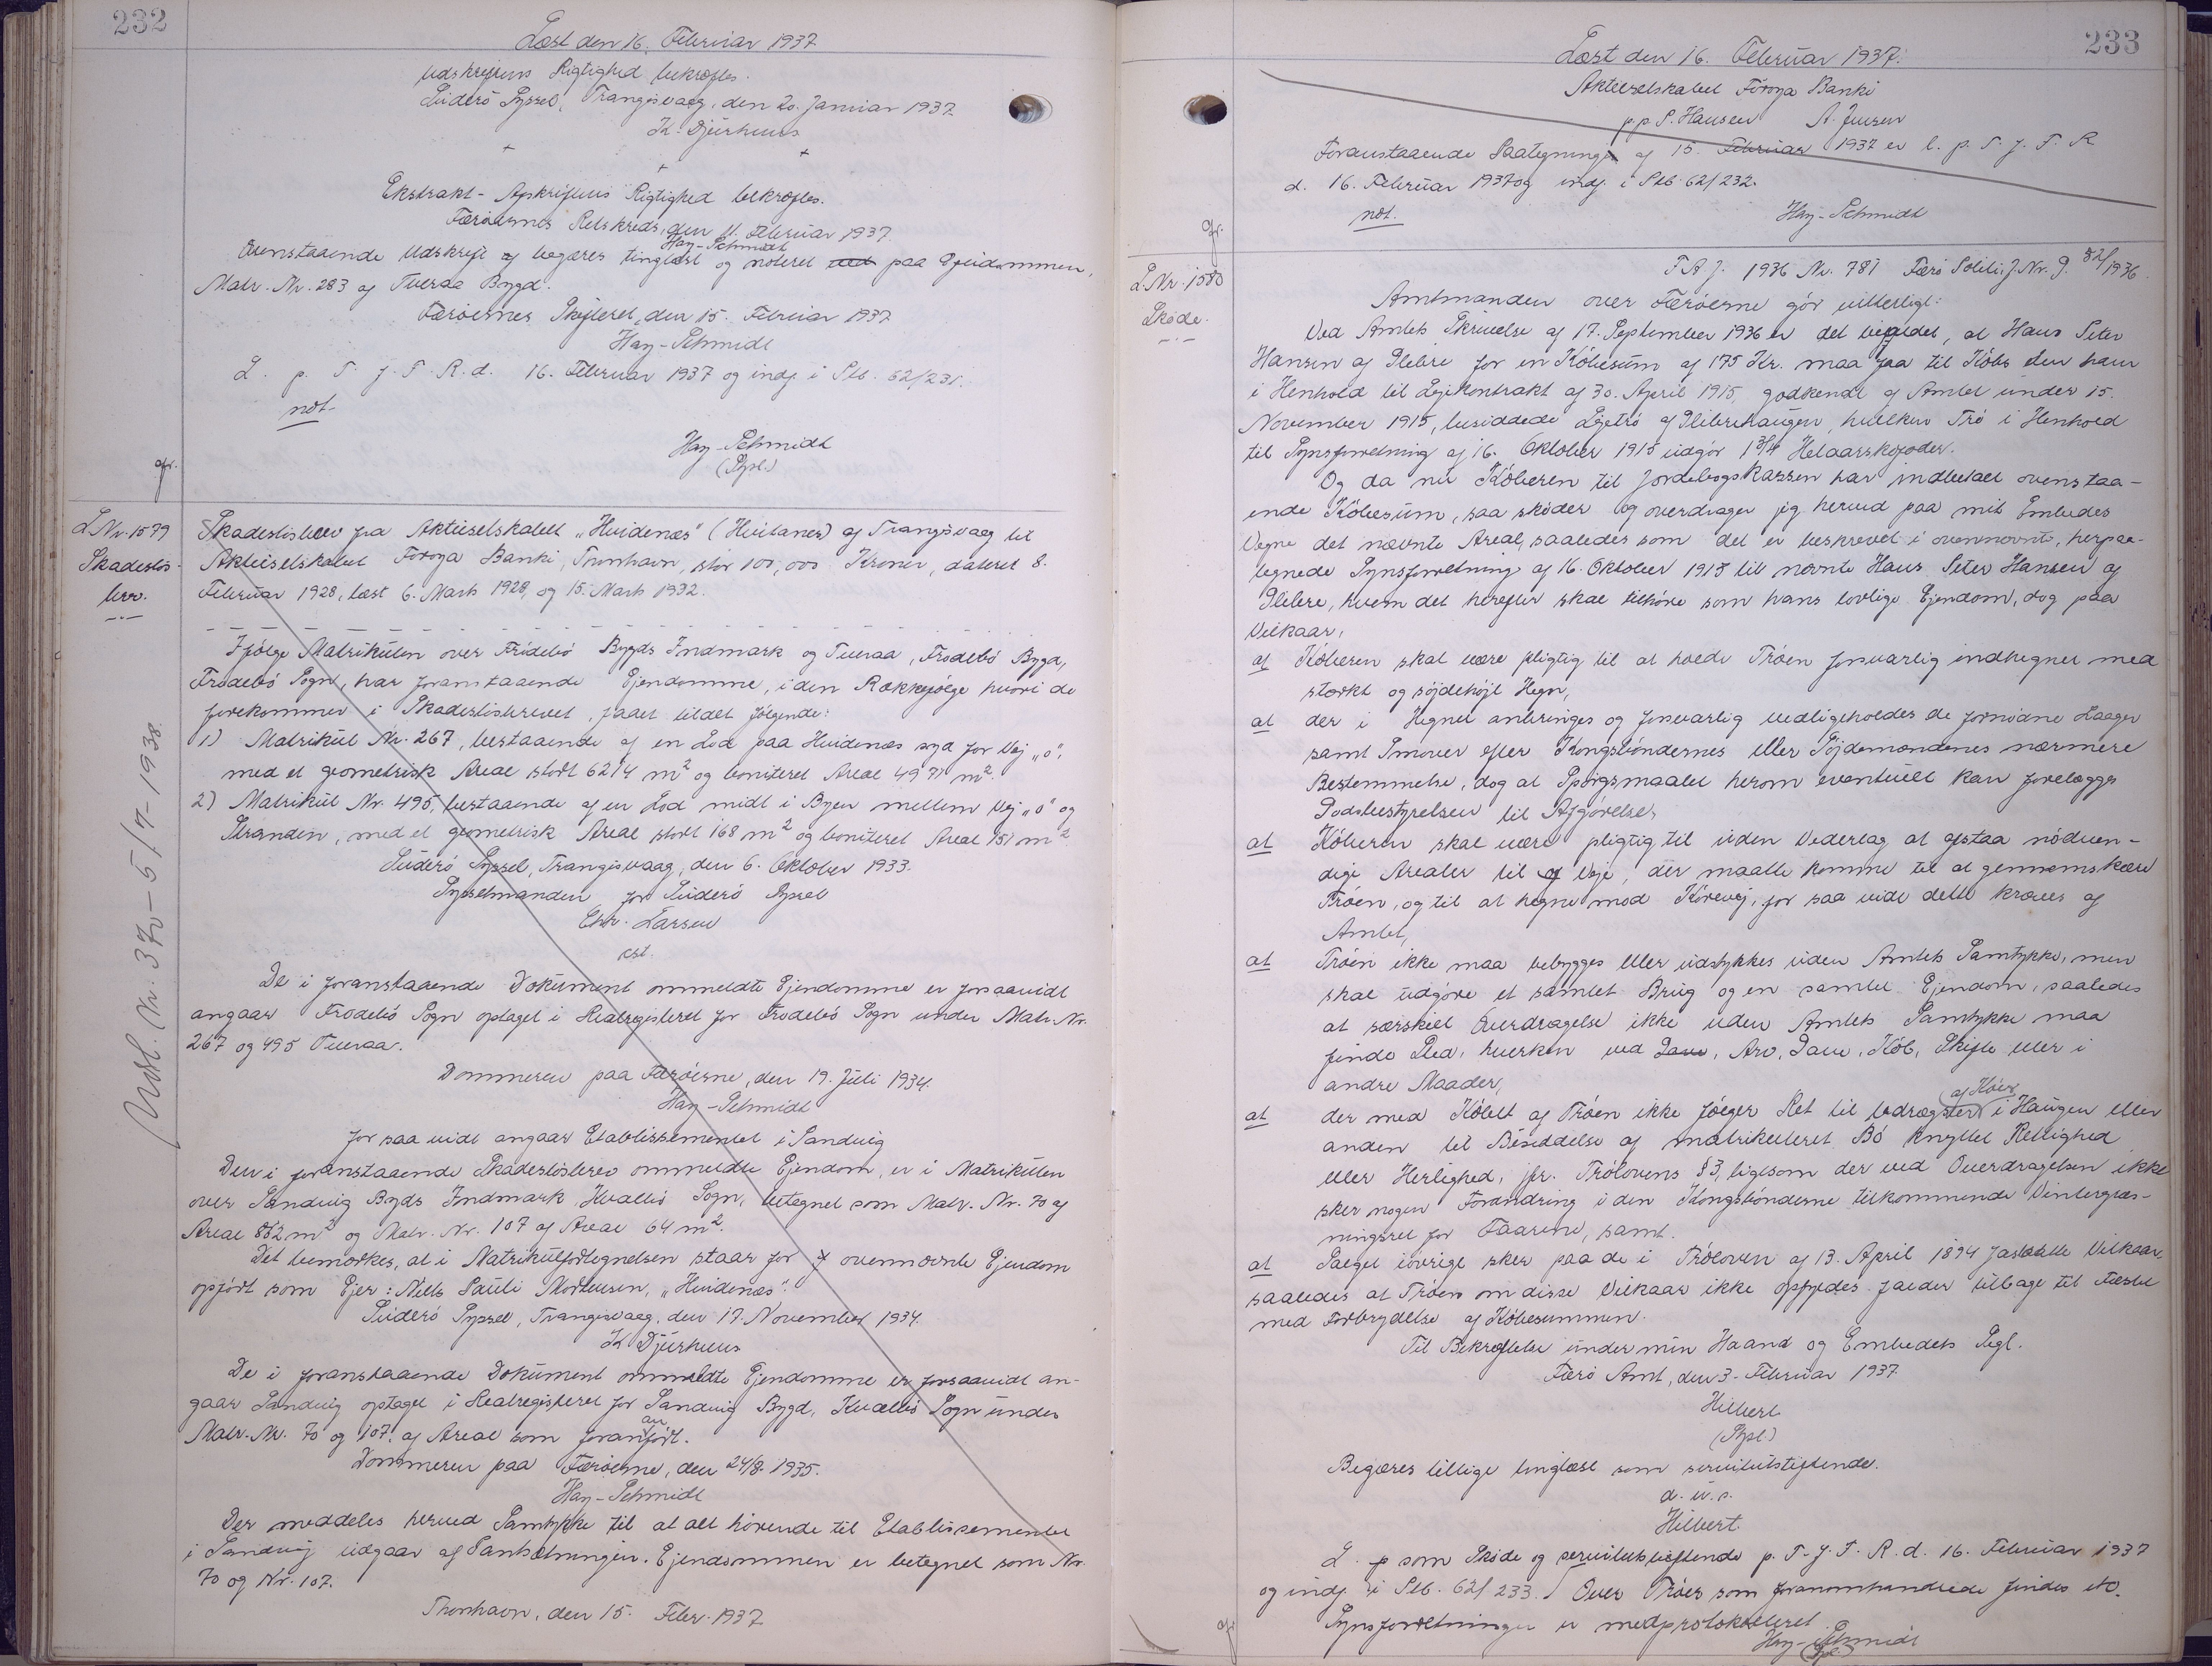 232
Læst den 16. Februar 1937
Udskriftens Rigtighed bekræftes.
Suderö Syssel, Trangisvaag, den 20. Januar 1937
K. Djurhuus
Ekstrakt-Afskriftens Rigtighed bekræftes.
Færöernes Retskreds, den 11. Februar 1937.
Hay-Schmidt
Ovenstaaende Udskrift af begæres tinglæst og noteret ved paa Ejendommen,
Matr. Nr. 283 af Tveraa Bygd.
Færöernes Skifteret, den 15. Februar 1937
Hay-Schmidt
L. p. S. f. F. R. d. 16. Februar 1937 og indf. i Stb. 62/231.
not.
Hay-Schmidt
(Sgl.)
gr.
L.Nr. 1579
Skadeslös-
brev.
Skadeslösbrev fra Aktieselskabet "Hvidenæs" (Hvitanes) af Trangisvaag til
Aktieselskabet Föroya Banki, Thorshavn, stor 100,000 Kroner, dateret 8.
Februar 1928, læst 6. Marts 1928, og 15. Marts 1932.
Ifölge Matrikulen over Frodebö Bygds Indmark og Tveraa, Frodebö Bygd,
Frodebö Sogn, har foranstaaende Ejendomme, i den Rækkefölge hvori de
forekommer i Skadeslösbrevet, faaet tildelt fölgende:
1) Matrikul Nr. 267, bestaaende af en Lod paa Hvidenæs syd for Vej "o",
med et geometrisk Areal stort 6214 m² og boniteret Areal 4971 m².
2) Matrikul Nr. 495, bestaaende af en Lod midt i Byen mellem Vej "o" og
Stranden, med et geometrisk Areal stort 168 m² og boniteret Areal 151 m²
Suderö Syssel, Trangisvaag, den 6. Oktober 1933.
Sysselmanden for Suderö Syssel
Chr. Larsen
cst.
De i foranstaaende Dokument ommeldte Ejendomme er forsaavidt
angaar Frodebö Sogn optaget i Realregisteret for Frodebö Sogn under Matr. Nr.
267 og 495 Tveraa.
Dommeren paa Færöerne, den 19. Juli 1934.
Hay-Schmidt
for saa vidt angaar Etablissementet i Sandvig
Den i foranstaaende Skadeslösbrev ommeldte Ejendom, er i Matrikulen
over Sandvig Bygds Indmark, Hvalbö Sogn, betegnet som Matr. Nr. 70 af
Areal 852 m² og Matr. Nr. 107 af Areal 64 m².
Det bemærkes, at i Matrikulfortegnelsen staar for af ovennævnte Ejendom
opfört som Ejer: Niels Pauli Mortensen, "Hvidenæs".
Suderö Syssel, Trangisvaag, den 17. November 1934.
K. Djurhuus
De i foranstaaende Dokument ommeldte Ejendomme er forsaavidt an-
gaar Sandvig optaget i Realregisteret for Sandvig Bygd, Hvalbö Sogn under
Matr. Nr. 70 og 107, af Areal som foran anfört.
Dommeren paa Færöerne, den 24/8. 1935.
Hay-Schmidt
Der meddeles herved Samtykke til at alt hörende til Etablissementet
i Sandvig udgaar af Pantsætningen. Ejendommen er betegnet som Nr.
70 og Nr. 107.
Thorshavn, den 15. Febr. 1937
Udsl. Nr. 370 - 5/7 - 1938.
233
Læst den 16. Februar 1937.
Aktieselskabet Föroya Banki
pp S. Hansen A. Jensen
Foranstaaende Paategninger af 15. Februar 1937 er l. p. S. f. F. R
d. 16. Februar 1937 og indf. i Stb. 62/232.
not.
Hay-Schmidt
gr.
L.Nr. 1580
Sköde.
F A J. 1936 Nr. 781 Færö Politi J. Nr. G. 32/1936.
Amtmanden over Færöerne gör vitterligt:
Ved Amtets Skrivelse af 17. September 1936 er det bevilget, at Hans Peter
Hansen af Glibre for en Köbesum af 175 Kr. maa faa til Köbs den ham
i Henhold til Lejekontrakt af 30. April 1915, godkendt af Amtet under 15.
November 1915, besiddede Lejetrö af Glibrehaugen, hvilken Trö i Henhold
til Synsforretning af 16. Oktober 1915 udgör 1 3/4 Helaarskofoder.
Og da nu Köberen til Jordebogskassen har indbetalt ovenstaa-
ende Köbesum, saa sköder og overdrager jeg herved paa mit Embedes
Vegne det nævnte Areal, saaledes som det er beskrevet i ovennævnte, herpaa-
tegnede Synsforretning af 16. Oktober 1915 til nævnte Hans Peter Hansen af
Glibre, hvem det herefter skal tilhöre som hans lovlige Ejendom, dog paa
Vilkaar,
at Köberen skal være pligtig til at holde Tröen forsvarlig indhegnet med
stærkt og söjdehöjt Hegn,
at der i Hegnet anbringes og forsvarlig vedligeholdes de fornödne Laager
samt Smover efter Kongsböndernes eller Söjdemændenes nærmere
Bestemmelse, dog at Spörgsmaalet herom eventuelt kan forelægges
Godsbestyrelsen til Afgörelse,
at Köberen skal være pligtig til uden Vederlag at afstaa nödven-
dige Arealer til af Veje, der maatte komme til at gennemskære
Tröen, og til at hegne mod Körevej, for saa vidt dette kræves af
Amtet,
at Tröen ikke maa bebygges eller udstykkes uden Amtets Samtykke, men
skal udgöre et samlet Brug og en samlet Ejendom, saaledes
at særskilt Overdragelse ikke uden Amtets Samtykke maa
finde Sted, hverken ved Gave, Arv, Gave, Köb, Skifte eller i
andre Maader,
at der med Köbet af Tröen ikke fölger Ret til Pedrægster af Köer i Haugen eller
anden til Besiddelse af matrikuleret Bö knyttet Rettighed
eller Herlighed, jfr. Trölovens § 3, ligesom der ved Overdragelsen ikke
sker nogen Forandring i den Kongsbönderne tilkommende Vintergræs-
ningsret for Faarene, samt
at Salget iövrigt sker paa de i Tröloven af 13. April 1894 fastsatte Vilkaar,
saaledes at Tröen om disse Vilkaar ikke opfyldes falder tilbage til Fæste
med Forbrydelse af Köbesummen.
Til Bekræftelse under min Haand og Embedets Segl.
Færö Amt, den 3. Februar 1937
Hilbert
(Sgl.)
Begæres tillige tinglæst som servitutstiftende.
d. u. s.
Hilbert
L. p som Sköde og servitutstiftende p. S. f. F. R. d. 16. Februar 1937
og indf. i Stb. 62/233. Over Tröer som foranomhandlede findes etc.
Synsforretningen er medprotokolleret.
Hay-Schmidt
(Sgl.)
gr.